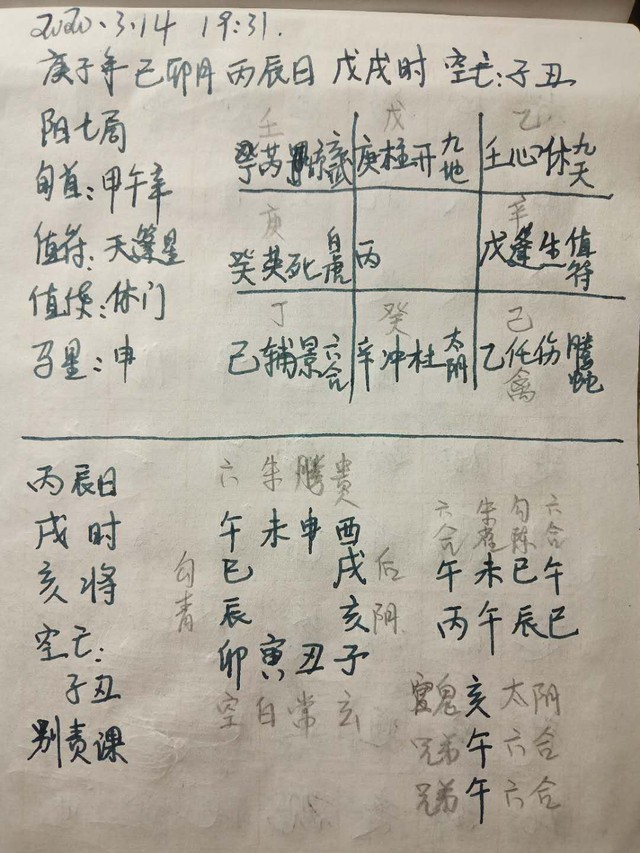 2020.3.14 19:31.
庚子年 己卯月 丙辰日 戊戌时 空亡:子丑
阳七局
旬首:甲午辛
值符:天蓬星
值使:休门
马星:申
壬 戊 乙
芮 惊 庚柱开九地 壬心休九天
庚 辛
癸英死白虎 丙 戊蓬生值符
丁 癸 己
己辅景六合 辛冲杜太阴 乙任伤腾蛇
禽
丙辰日
戌时
亥将
空亡:
子丑
别责课
六 朱 腾 贵
午 未 申 酉
勾 巳 戌 后
青 辰 亥 阴
卯 寅 丑 子
空 白 常 玄
六合 朱雀 勾陈 六合
午 未 巳 午
丙 午 辰 巳
官鬼 亥 太阴
兄弟 午 六合
兄弟 午 六合